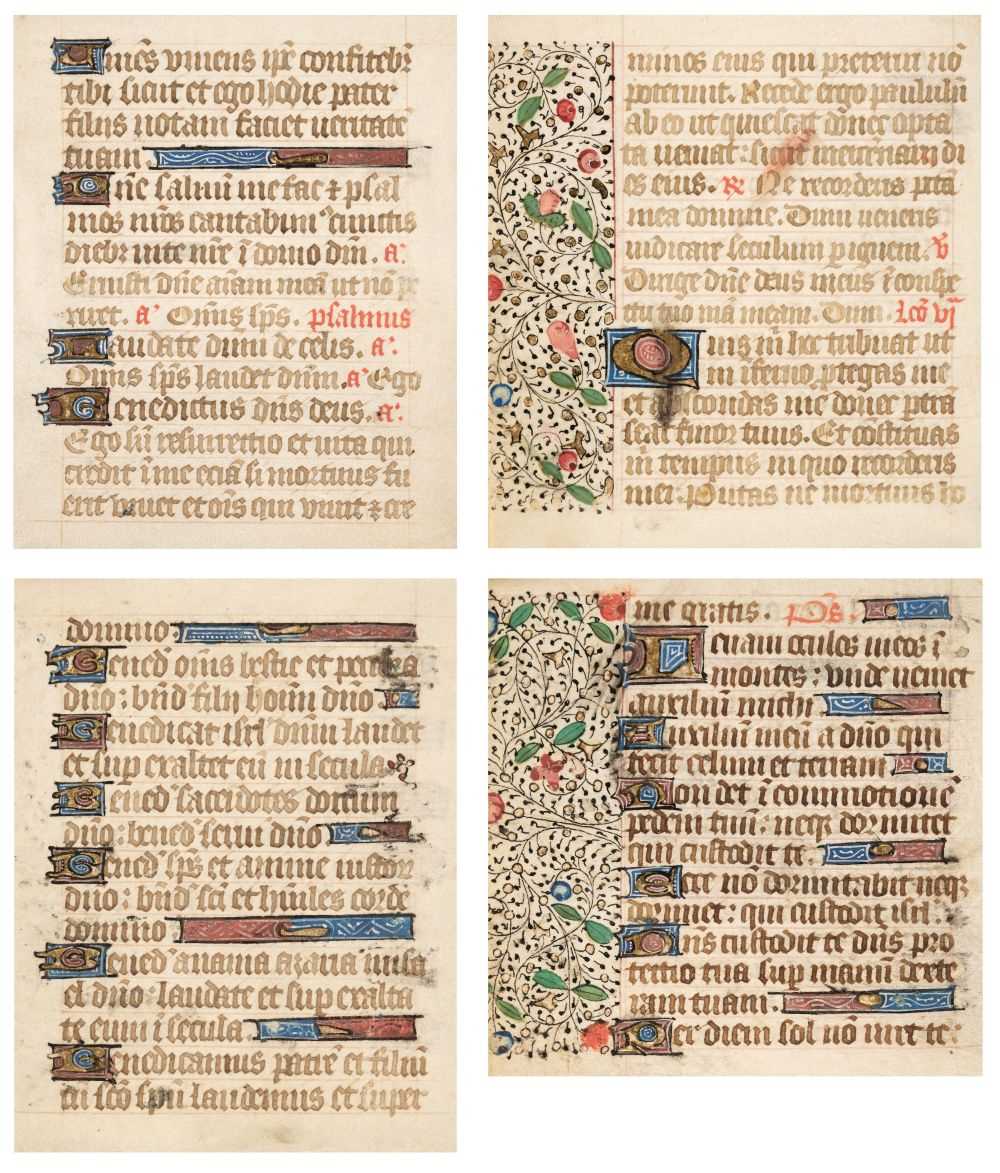 uiēs viuens ipē confitebr̄
tibi sicut et ego hodie pater
filijs notam faciet ueritatē
tuam
ñe saluū me fac ⁊ psal
mos nr̄os cantabim᷒ cunctis
diebȝ uite nr̄e ī domo dñi. a:
Eruisti dñe aīam meā ut nō pe
riret. a᷒ Omīs sps̄. psalmus
audate dūm de celis. a:
Omīs sps̄ laudet dūm. a᷒ Ego
enedictus dñs deus. a:
Ego sū resurrectio et uita qui
credit ī me eciā si mortuus fu
erit viuet et oīs qui viuit ⁊ cre
minos eius qui preterirī nō
poterunt. Recede ergo paululū
ab eo ut quiescat donec opta
ta ueniat: sicut mercenarij di
es eius. ℞ Ne recorderis pctā
mea domine. Dum ueneris
iudicare seculum p ignem. ℣
Dirige dñe deus meus ī conspe
ctu tuo uiā meam. Dum. Lcō vj
uis m̄ hoc tribuat ut
in īferno ptegas me
et abscondas me donec ptrā
seat furor tuus. Et cōstituas
m̄ tempus in quo recorderis
mei. Putas ne mortuus hō
domino
ened᷒ omīs bestie et pecora
dño: bn̄d᷒ filij hoīm dño
enedicat isrl᷒ dūm laudet
et sup exaltet eū in secula
ened᷒ sacerdotes domini
dño: bened᷒ serui dño
ened᷒ sps̄ et anime iustor
dño: bn̄d᷒ scī et hūiles corde
domino
ened᷒ anania azaria misa
el dño: laudate et sup exalta
te eum ī secula.
enedicamus patrē et filiū
cū scō spū laudemus et super
me gratis. Ps̄.
euaui oculos meos ī
montes: vnde ueniet
auxiliū michi
uxiliū meū a dño qui
fecit celum et terram
on det ī commotionē
pedem tuū: neqȝ dormitet
qui custodit te.
cce nō dormitabit neqȝ
dormiet: qui custodit isrl
ñs custodit te dñs pro
tectio tua sup manū dexte
ram tuam.
er diem sol nō uret te: